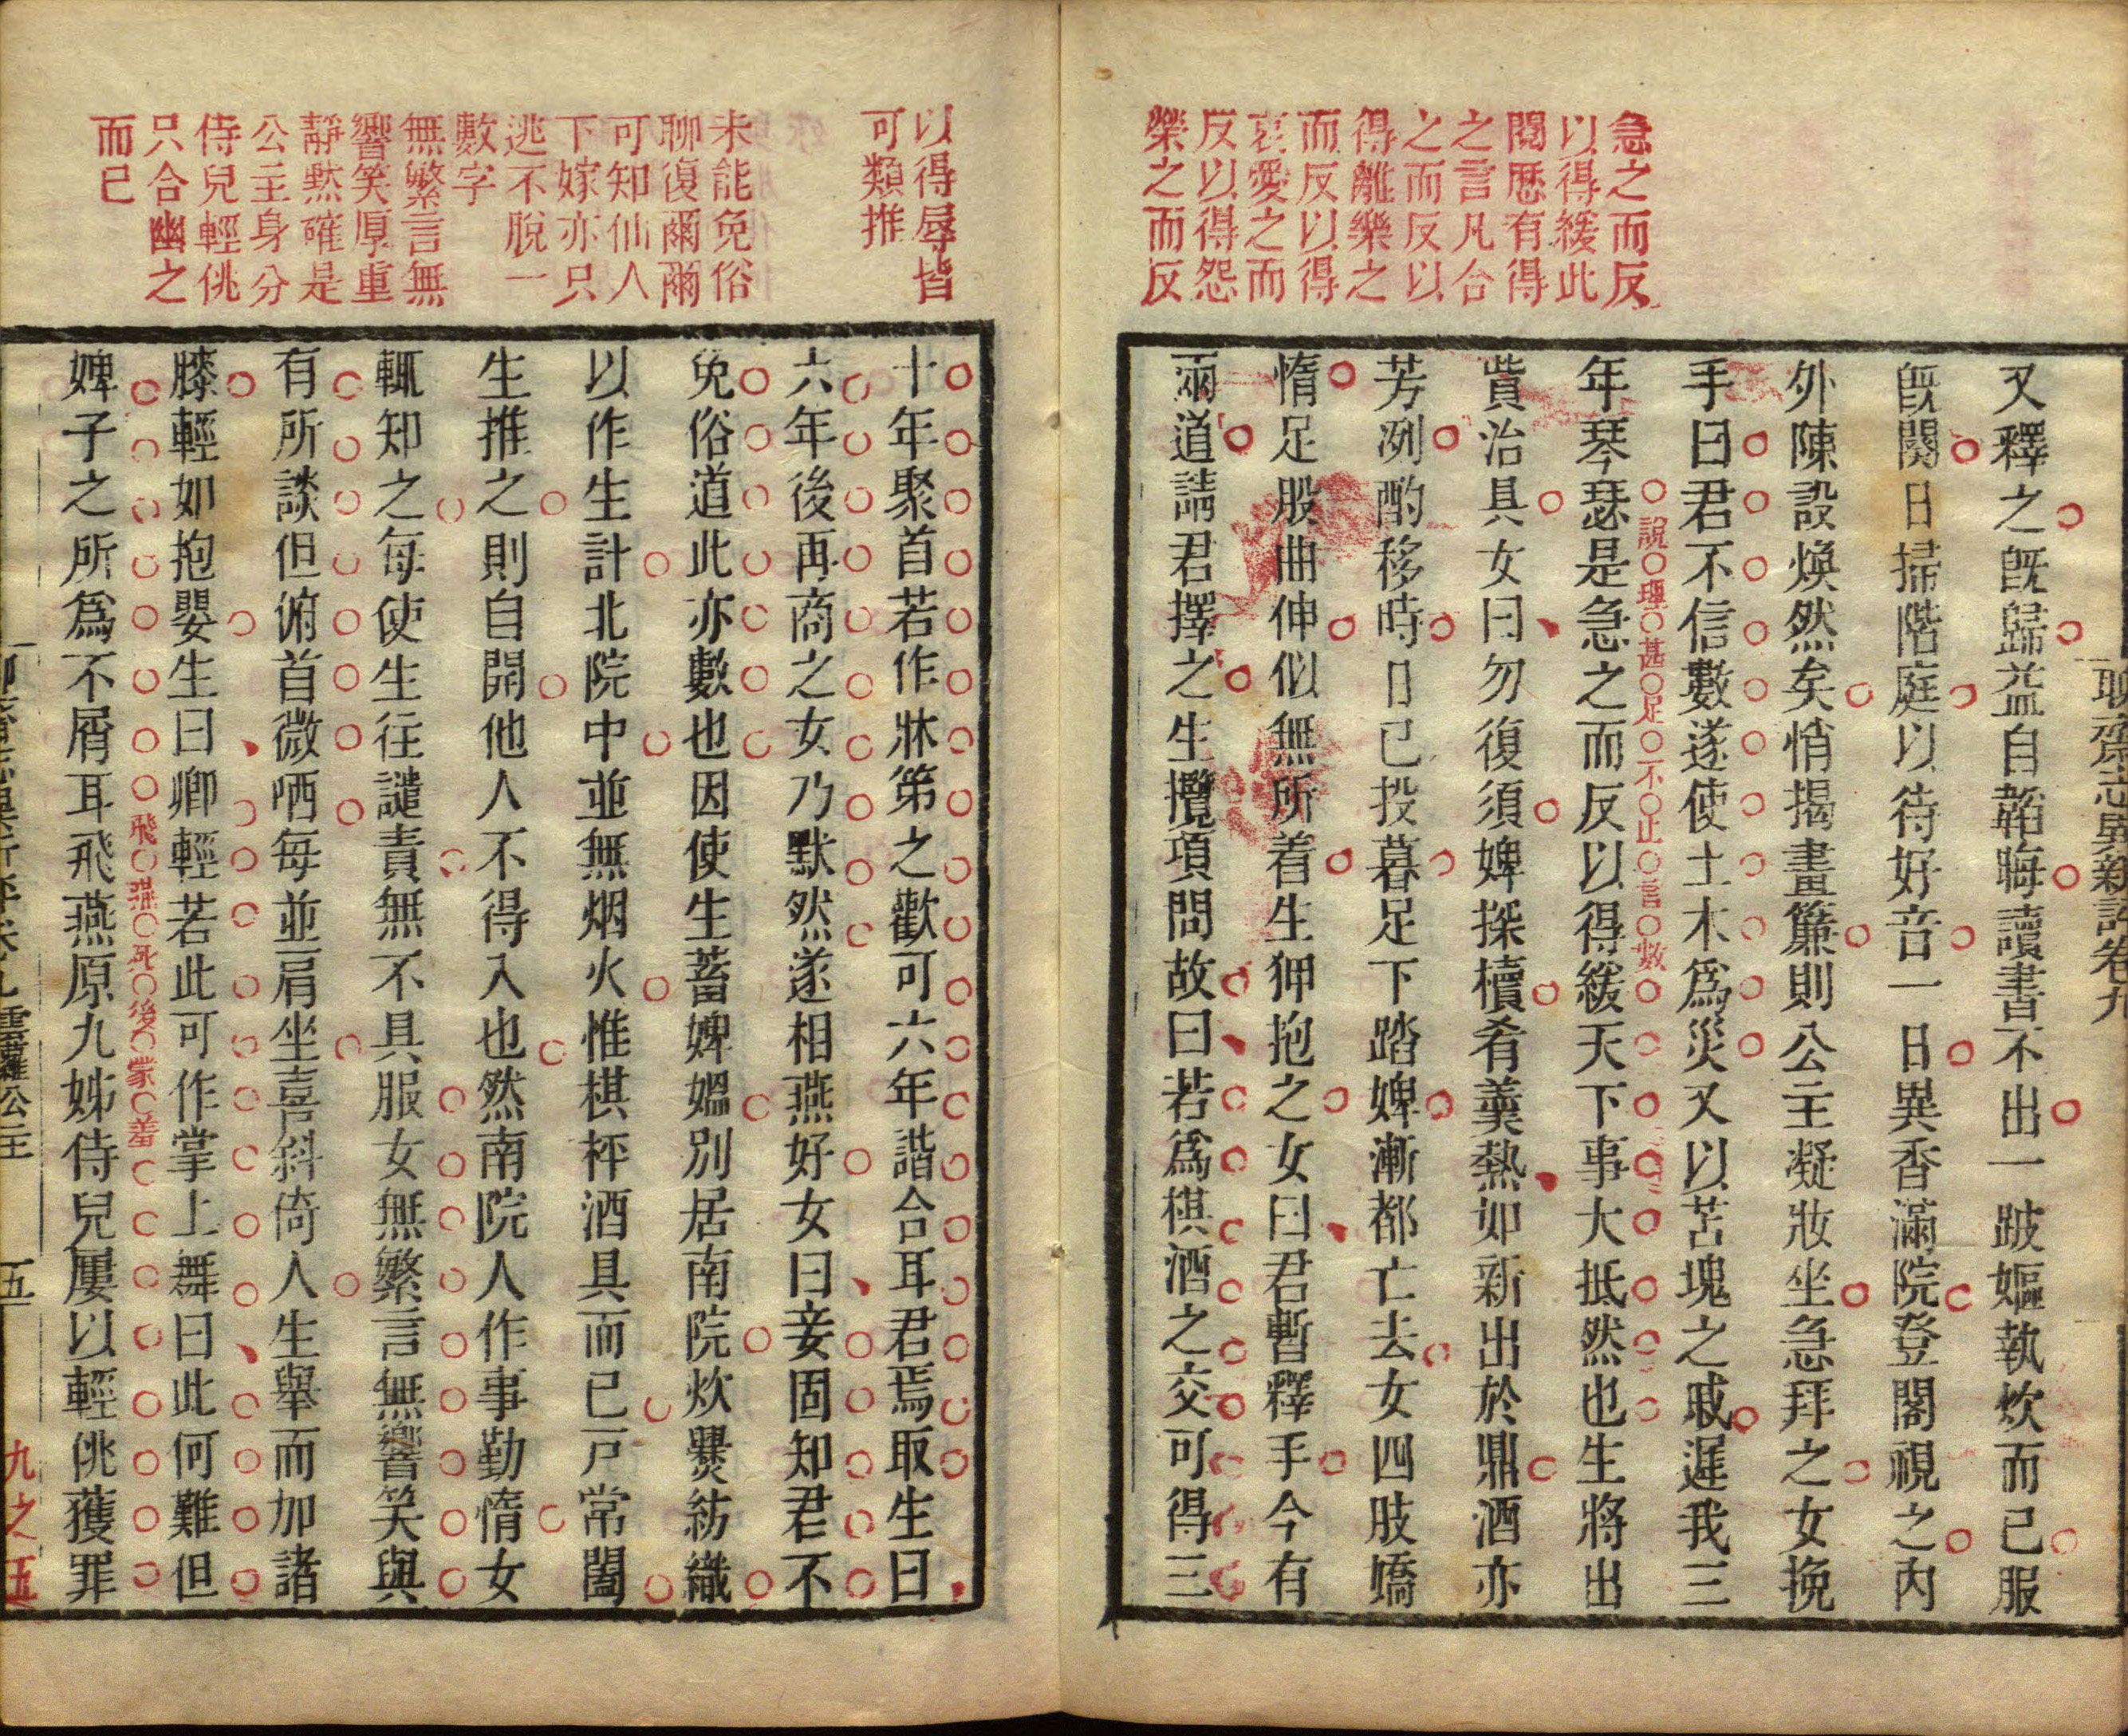 急之而反
以得緩此
閱歷有得
之言凡合
之而反以
得離樂之
而反以得
哀愛之而
反以得怨
榮之而反
聊齋志異新評卷九
又釋之既歸益自韜晦讀書不出一跛嫗執炊而已服
既闋日掃階庭以待好音一日異香滿院登閣視之內
外陳設煥然矣悄揭畫簾則公主凝妝坐急拜之女挽
手曰君不信數遂使土木為災又以苫塊之戚遲我三
年琴瑟是急之而反以得緩天下事大抵然也生將出
說理甚足不止言數
貲治具女曰勿復須婢探櫝肴羹熱如新出於鼎酒亦
芳冽酌移時日已投暮足下踏婢漸都亡去女四肢嬌
惰足股曲伸似無所着生狎抱之女曰君暫釋手今有
兩道請君擇之生攬項問故曰若為棋酒之交可得三
以得辱皆
可類推
未能免俗
聊復爾爾
可知仙人
下嫁亦只
逃不脫一
數字
無繁言無
響笑厚重
靜默確是
公主身分
侍兒輕佻
只合幽之
而已
十年聚首若作牀笫之歡可六年諧合耳君焉取生曰
六年後再商之女乃默然遂相燕好女曰妾固知君不
免俗道此亦數也因使生蓄婢媼別居南院炊爨紡織
以作生計北院中並無烟火惟棋枰酒具而已戶常闔
生推之則自開他人不得入也然南院人作事勤惰女
輒知之每使生往譴責無不具服女無繁言無響笑與
有所談但俯首微哂每並肩坐喜斜倚人生舉而加諸
膝輕如抱嬰生曰卿輕若此可作掌上舞曰此何難但
婢子之所為不屑耳飛燕原九姊侍兒屢以輕佻獲罪
飛燕死後蒙羞
雲蘿公主
五
九之五